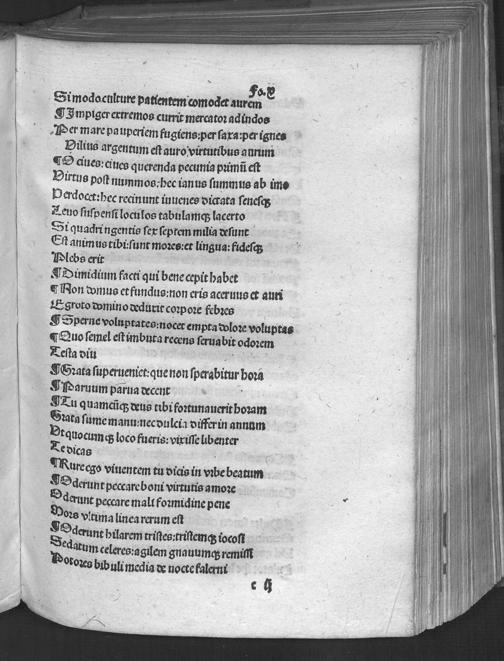 Fo.V
Si modo culture patientem comodet aurem
¶Impiger extremos currit mercator ad indos
Per mare pauperiem fugiens:per saxa:per ignes
Vilius argentum est auro virtutibus aurum
¶O ciues:ciues querenda pecunia primũ est
Virtus post nummos:hec ianus summus ab imo
Perdocet:hec recinunt iuuenes dictata senesqꝫ
Leuo suspensi loculos tabulamqꝫ lacerto
Si quadringentis sex septem milia desunt
Est animus tibi:sunt mores:et lingua:fidesqꝫ
Plebs erit
¶Dimidium facti qui bene cepit habet
¶Non domus et fundus:non eris aceruus et auri
Egroto domino deduxit corpore febres
¶Sperne voluptates:nocet empta dolore voluptas
¶Quo semel est imbuta recens seruabit odorem
Testa diu
¶Grata superueniet:que non sperabitur hora
¶Paruum parua decent
¶Tu quamcũqꝫ deus tibi fortunauerit horam
Grata sume manu:nec dulcia differ in annum
Vt quocumqꝫ loco fueris:vixisse libenter
Te dicas
¶Rure ego viuentem tu dicis in vrbe beatum
¶Oderunt peccare boni virtutis amore
Oderunt peccare mali formidine pene
Mors vltima linea rerum est
¶Oderunt hilarem tristes:tristemqꝫ iocosi
Sedatum celeres:agilem gnauumqꝫ remissi
Potores bibuli media de nocte falerni
c ij